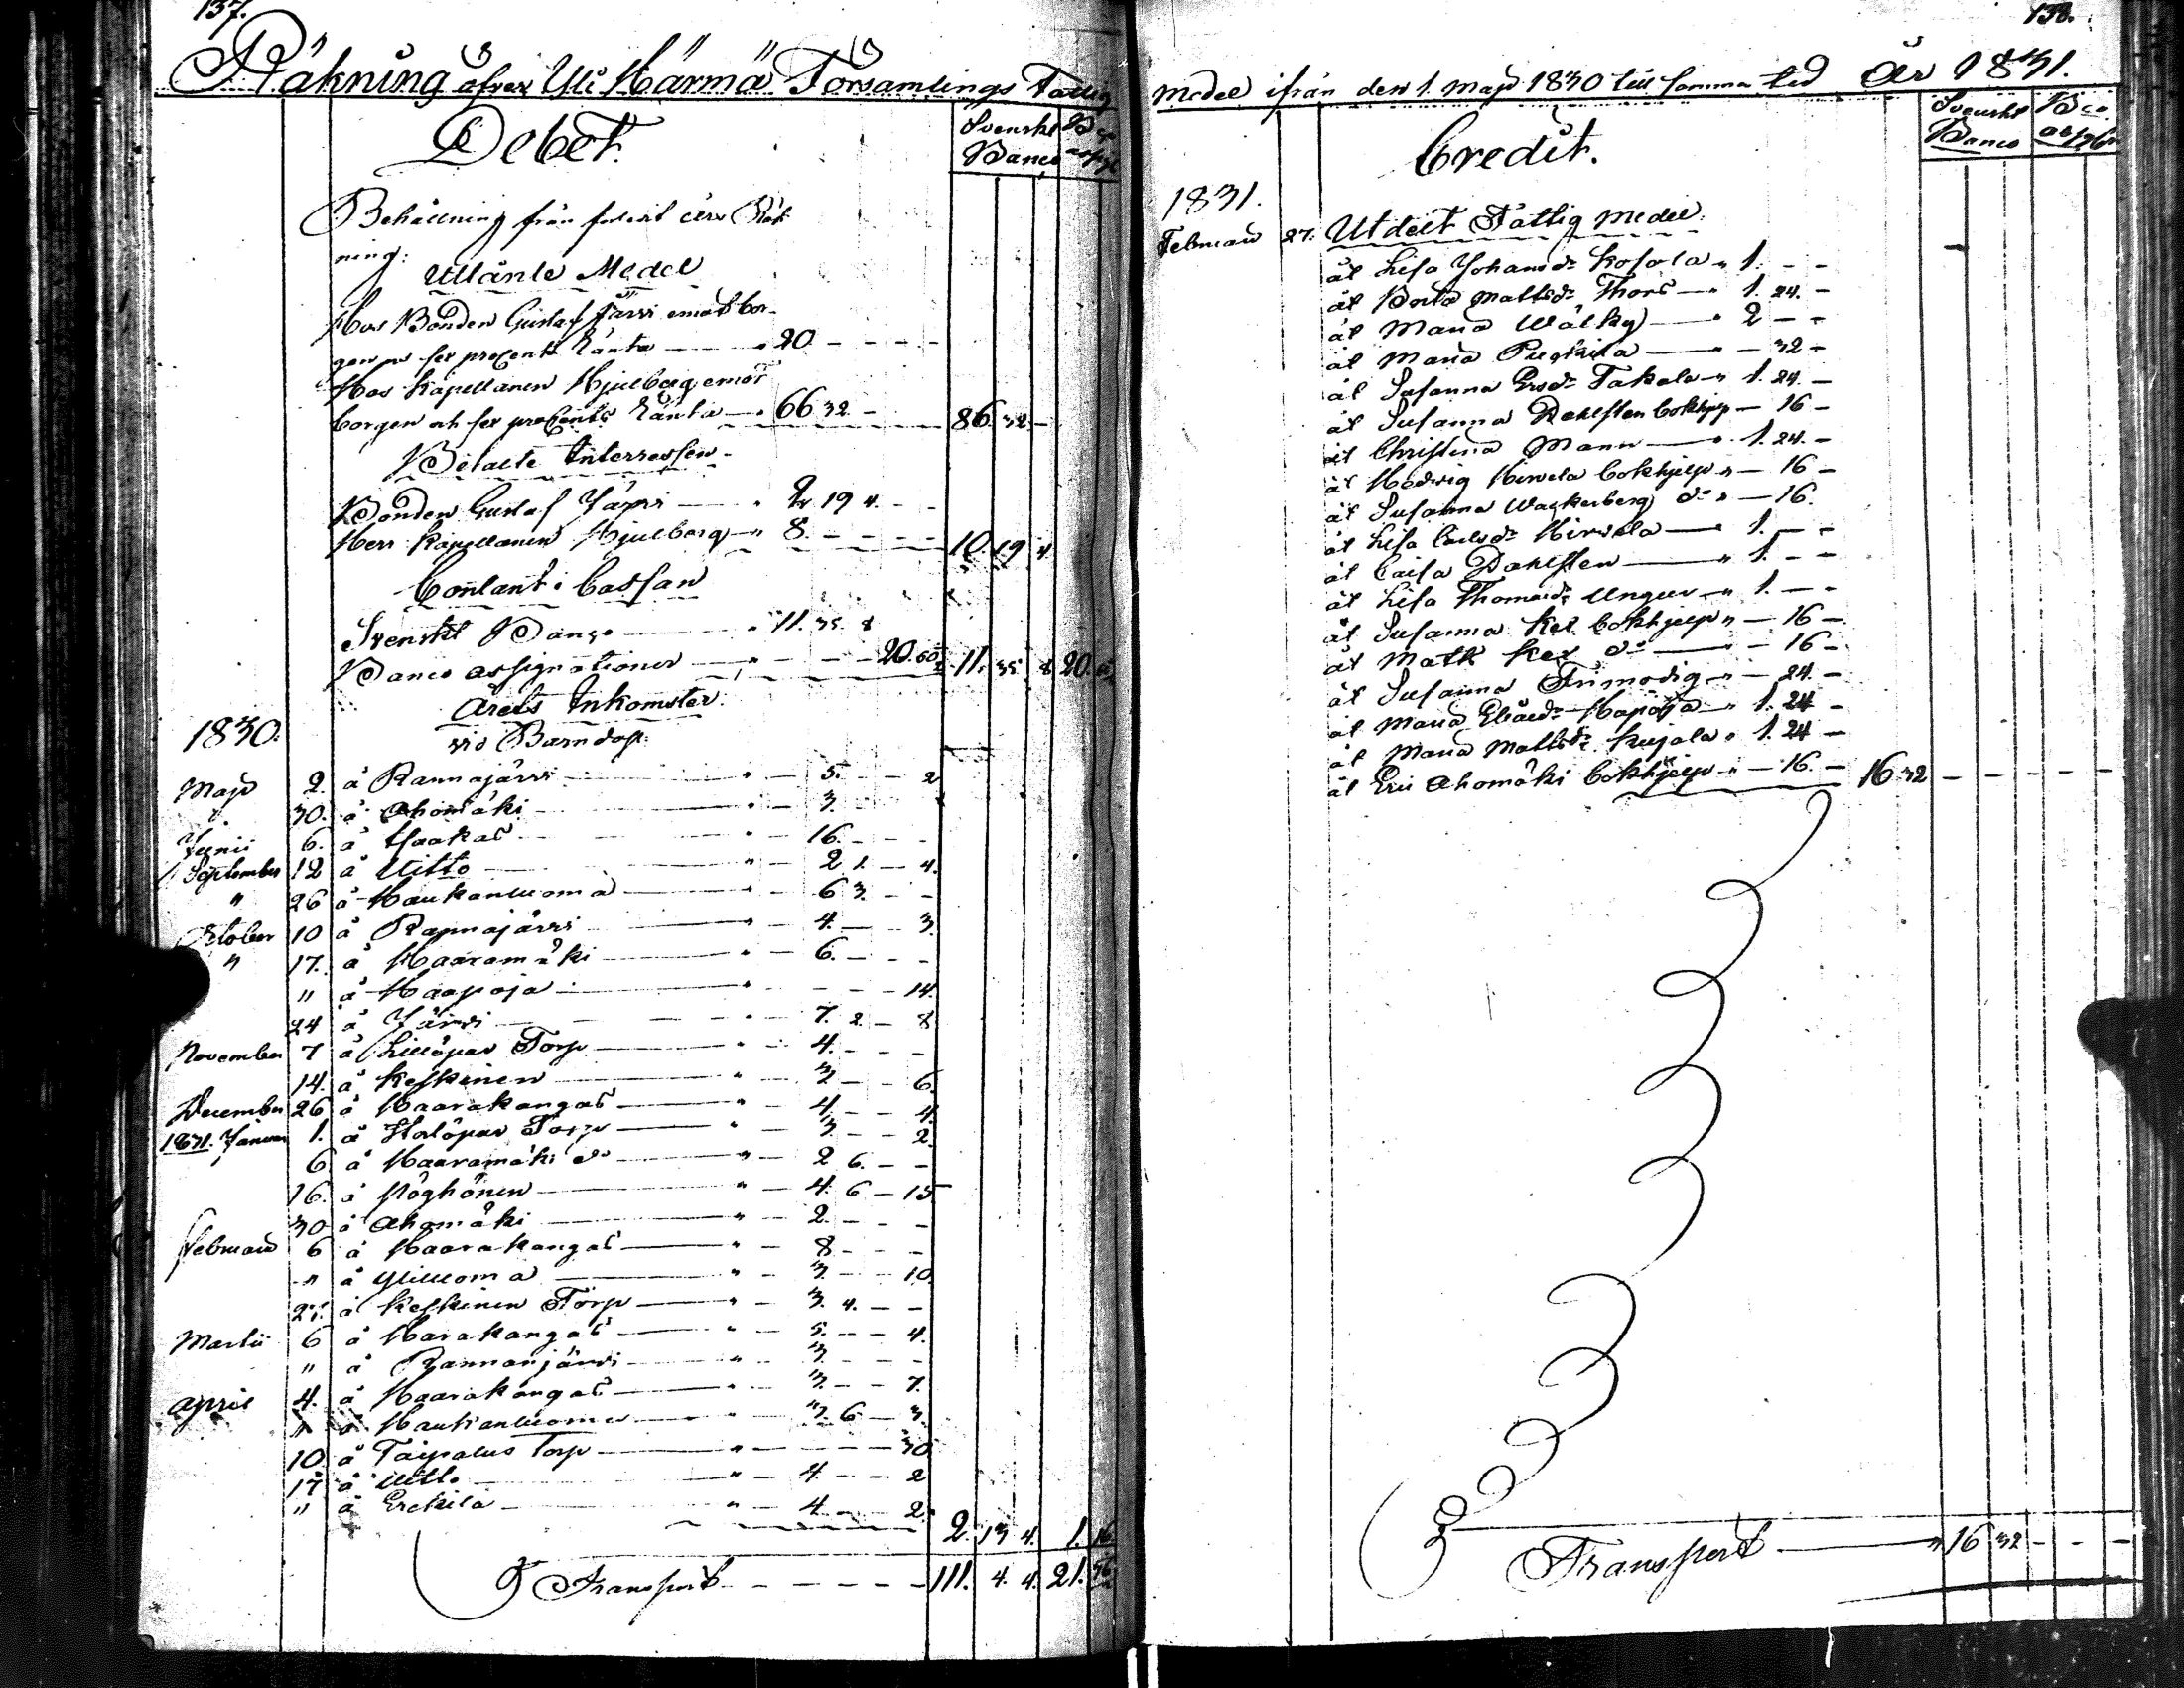 137.
Räkning öfver Yli Härmä Församlings Fattig
Debet.
Svenskt Banco
Bco assign
Behållning från sednast års Räk-
ning:
Utlånte Medel
Hos Bonden Gustaf Järvi emot bor-
gen och sex procents Ränta — " 20. - - -
Hos Kapellanen Hjulberg emot
borgen och sex procents Ränta — " 66 32 - 86. 32. -
Betalte Interressen
Bonden Gustaf Järvi — " 2 19 4. - -
Herr Kapellanen Hjulberg — " 8. - - - - 10. 19 4
Contant i Cassan
Svenskt Banco — " 11. 35. 8
Banco assignationer — " - - - 20. 60 11. 35 8 20. 60
Årets Inkomster
1830. vid Barndop:
Maji 2. å Rannajärvi — " - 5. - - 2
" 30. å Ahomäki — " - 3. - - -
Junii 6. å Haakas — " - 16. - - -
September 12 å Uitto — " - 2 1. - 4.
" 26 å Haukanluoma — " - 6 3. - -
October 10 å Rannajärvi — " - 4. - - 3.
" 17. å Haaramäki — " - 6. - - -
" å Haapoja — " - - - - 14.
24 å Järvi — " - 7. 2. - 8
November 7 å Lillöpas Torp — " - 4. - - -
14. å Keskinen — " - 3 - - 6.
December 26 å Haarakangas — " - 4 - - 4.
1831. Januari 1. å Torp — " - 3. - - 2.
6 å Haaramäki do — " - 2 6. - -
16. å Pöyhönen — " - 4. 6 - 15
30 å Ahomäki — " - 2. - - -
Februarii 6 å Haarakangas — " - 8. - - -
" å Yliluoma — " - 3. - - 10.
27. å Keskinen Torp — " - 3. 4. - -
Martii 6 å Harakangas — " - 5. - - 4.
" å Rannanjärvi — " - 3. - - -
April 4. å Haarakangas — " - 3. - - 7.
" å Haukanluoma — " - 3. 6 - 3.
10. å Taipalus Torp — " - - - - 30.
17 å Uitto — " - 4. - - 2
" å Erckilä — " - 4. - - 2.
2. 13 4. 1. 16
Transport - - - - - 111. 4. 4. 21. 76
138.
medel ifrån den 1. Maji 1830 till samma tid År 1831.
Credit.
Svenskt Banco
Bco assign
1831.
Februarii 27. Utdelt Fattig Medel:
åt Lisa Johansdr Kosola " 1. - -
åt Brita Mattsdr Thors — " 1. 24. -
åt Maria Wälky — " 2 - -
åt Maria — " - 32 -
åt Susanna Ersdr Takala " 1. 24. -
åt Susanna Dahlsten bokhjelp - 16 -
åt Christina Mann — " 1. 24. -
åt Hedvig Hirvelä bokhjelp " - 16 -
åt Susanna Wackerberg do " - 16.
åt Lisa Carlsdr Hirvelä — " 1. - -
åt Caisa Dahlsten — " 1. - -
åt Lisa Thomasdr Ungur " 1. - -
åt Susanna Ket bokhjelp " - 16 -
åt Math Ket do — - 16 -
åt Susanna Frimodig " - 24. -
åt Maria Eliædr Hapoja " 1. 24 -
åt Maria Mattsdr Kujala " 1. 24 -
åt Eric Ahomäki bokhjelp " - 16. - 16 32 - - - -
Transport — " 16 32 - - -